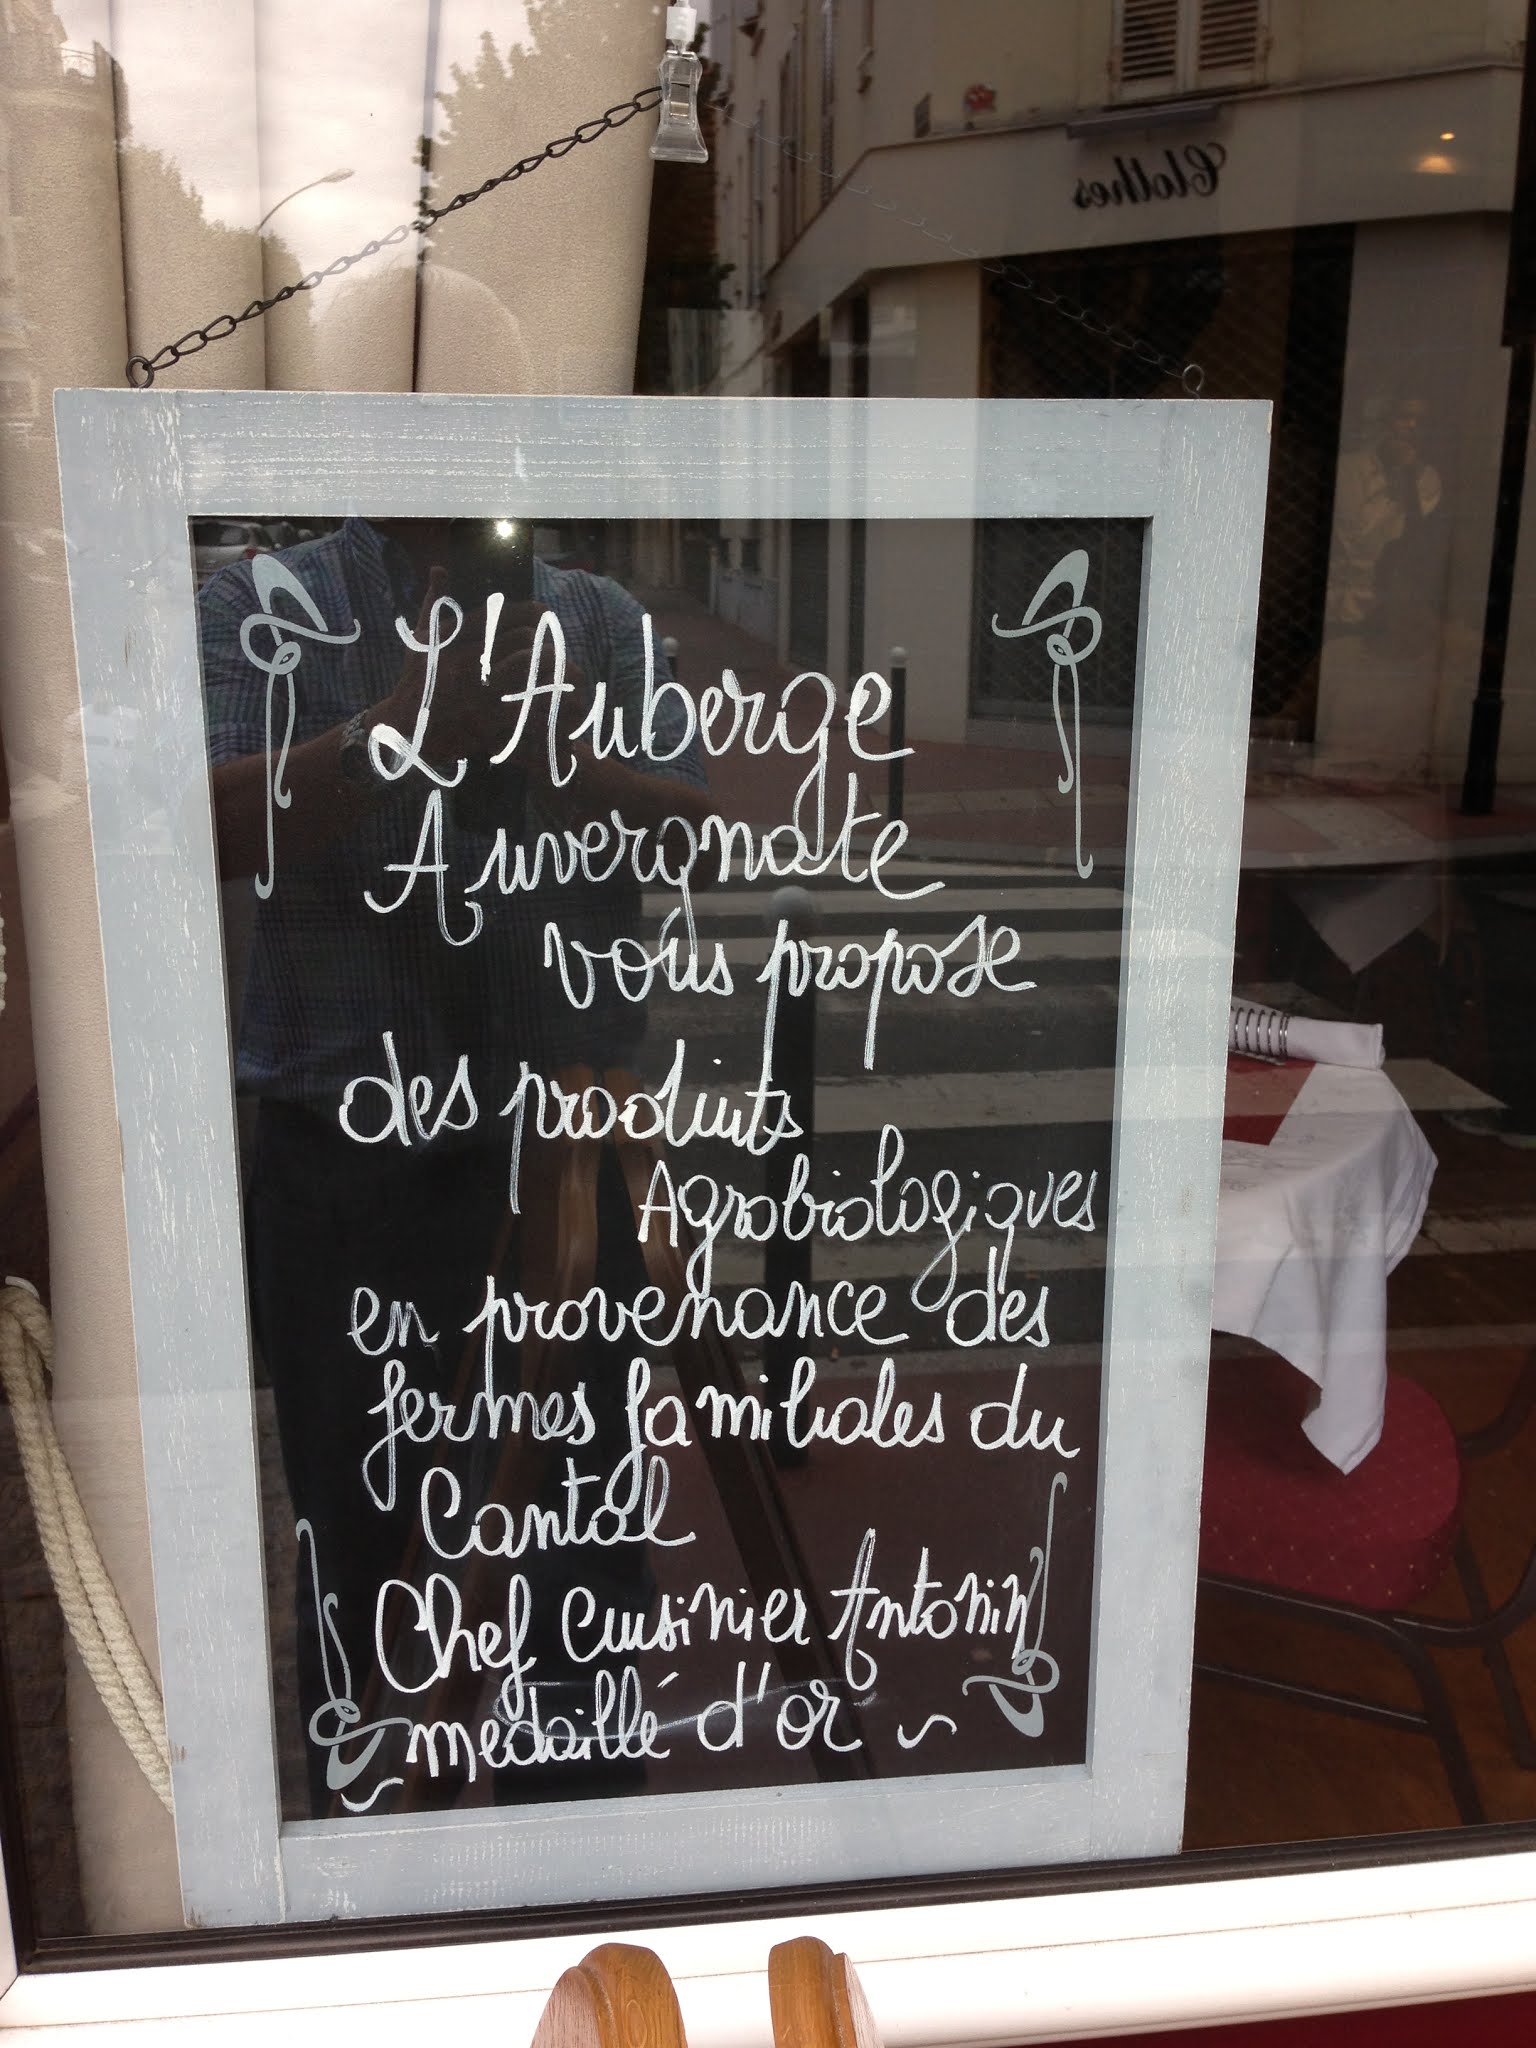 Clothes
L'Auberge
Auvergnate
vous propose
des produits
Agrobiologiques
en provenance des
fermes familiales du
Cantal
Chef Cuisinier Antonin
medaillé d'or